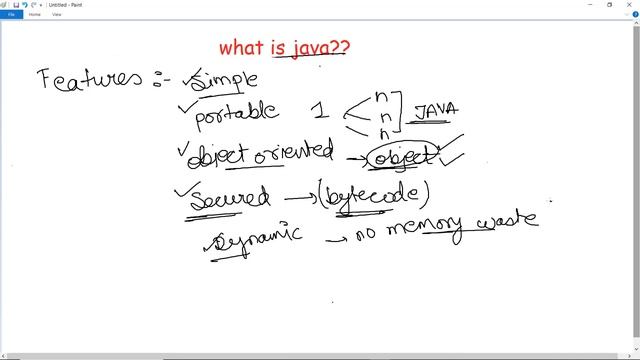 Untitled - Paint
File
Home
View
what is java??
Features :- Simple
portable 1 n
n JAVA
n
object oriented → object
Secured → (bytecode)
Dynamic → no memory waste